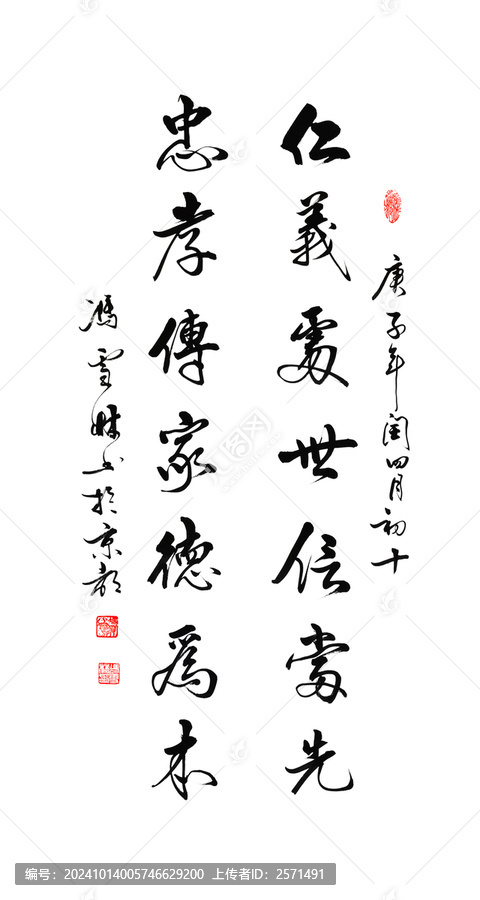 庚子年閏四月初十
仁義處世信當先
忠孝傳家德為本
馮雪林书於京都
编号：20241014005746629200 上传者ID：2571491